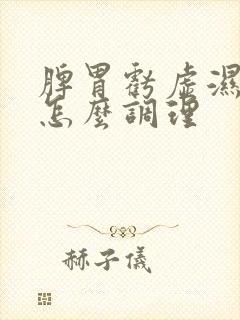 脾胃虧虛濕
怎麼調理
赫子儀